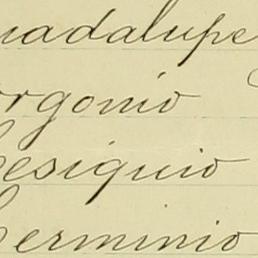 uadalupe
orgonio
esiquio
erminio